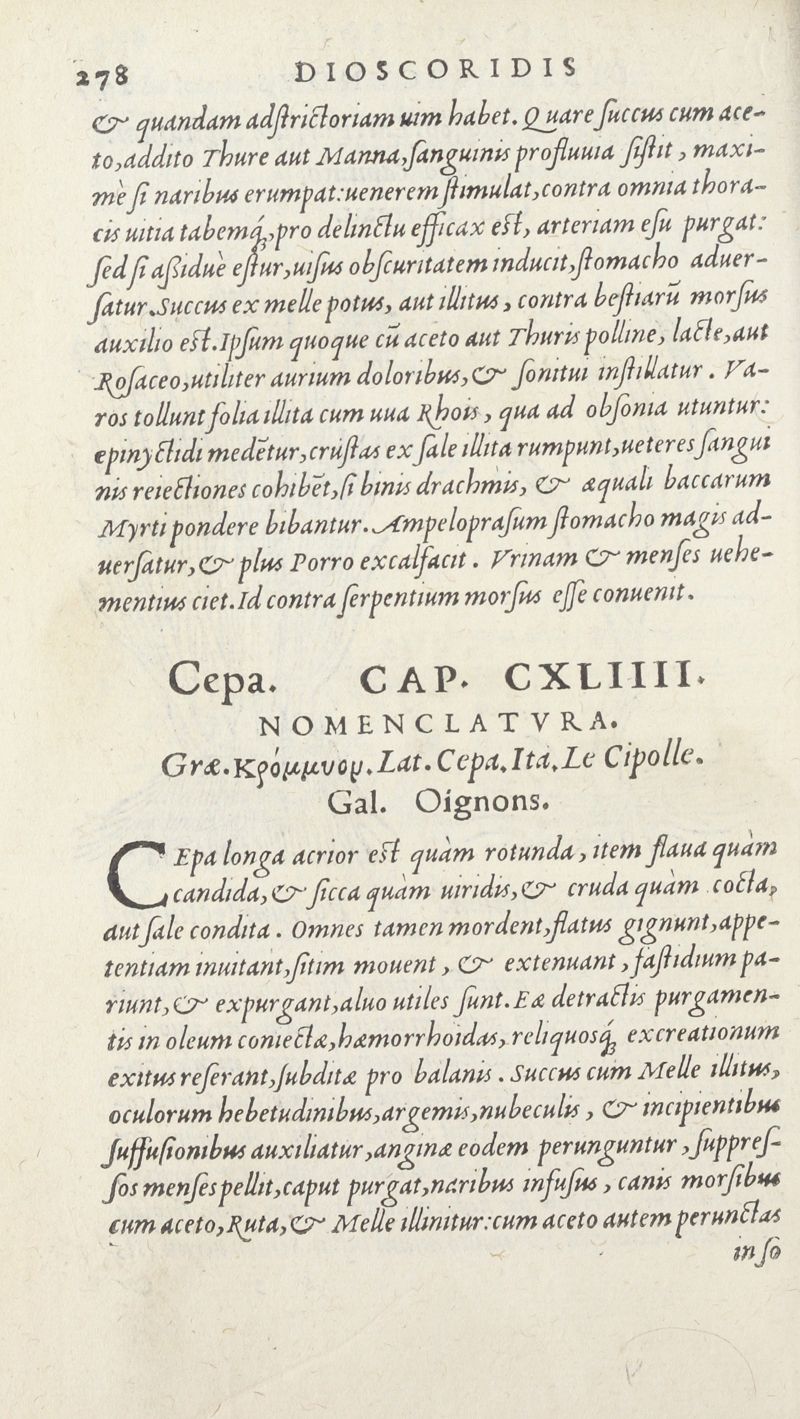 278 DIOSCORIDIS
& quandam adſtrictoriam uim habet. Quare ſuccus cum ace-
to, addito Thure aut Manna, ſanguinis profluuia ſiſtit, maxi-
mè ſi naribus erumpat: uenerem ſtimulat, contra omnia thora-
cis uitia tabemq́ꝫ, pro delinctu efficax eſt, arteriam eſu purgat:
ſed ſi aßiduè eſtur, uiſus obſcuritatem inducit, ſtomacho aduer-
ſatur. Succus ex melle potus, aut illitus, contra beſtiarū morſus
auxilio eſt. Ipſum quoque cū aceto aut Thuris polline, lacte, aut
Roſaceo, utiliter aurium doloribus, & ſonitui inſtillatur. Va-
ros tollunt folia illita cum uua Rhois, qua ad obſonia utuntur:
epinyctidi medētur, cruſtas ex ſale illita rumpunt, ueteres ſangui
nis reiectiones cohibēt, ſi binis drachmis, & æquali baccarum
Myrti pondere bibantur. Ampelopraſum ſtomacho magis ad-
uerſatur, & plus Porro excalfacit. Vrinam & menſes uehe-
mentius ciet. Id contra ſerpentium morſus eſſe conuenit.
Cepa. CAP. CXLIIII.
NOMENCLATVRA.
Græ. Κρόμμυου. Lat. Cepa. Ita. Le Cipolle.
Gal. Oignons.
CEpa longa acrior eſt quàm rotunda, item flaua quàm
candida, & ſicca quàm uiridis, & cruda quàm cocta,
aut ſale condita. Omnes tamen mordent, flatus gignunt, appe-
tentiam inuitant, ſitim mouent, & extenuant, faſtidium pa-
riunt, & expurgant, aluo utiles ſunt. Eæ detractis purgamen-
tis in oleum coniectæ, hæmorrhoidas, reliquosq́ꝫ excreationum
exitus reſerant, ſubditæ pro balanis. Succus cum Melle illitus,
oculorum hebetudinibus, argemis, nubeculis, & incipientibus
ſuffuſionibus auxiliatur, anginæ eodem perunguntur, ſuppreſ-
ſos menſes pellit, caput purgat, naribus infuſus, canis morſibus
cum aceto, Ruta, & Melle illinitur: cum aceto autem perunctas
in ſo